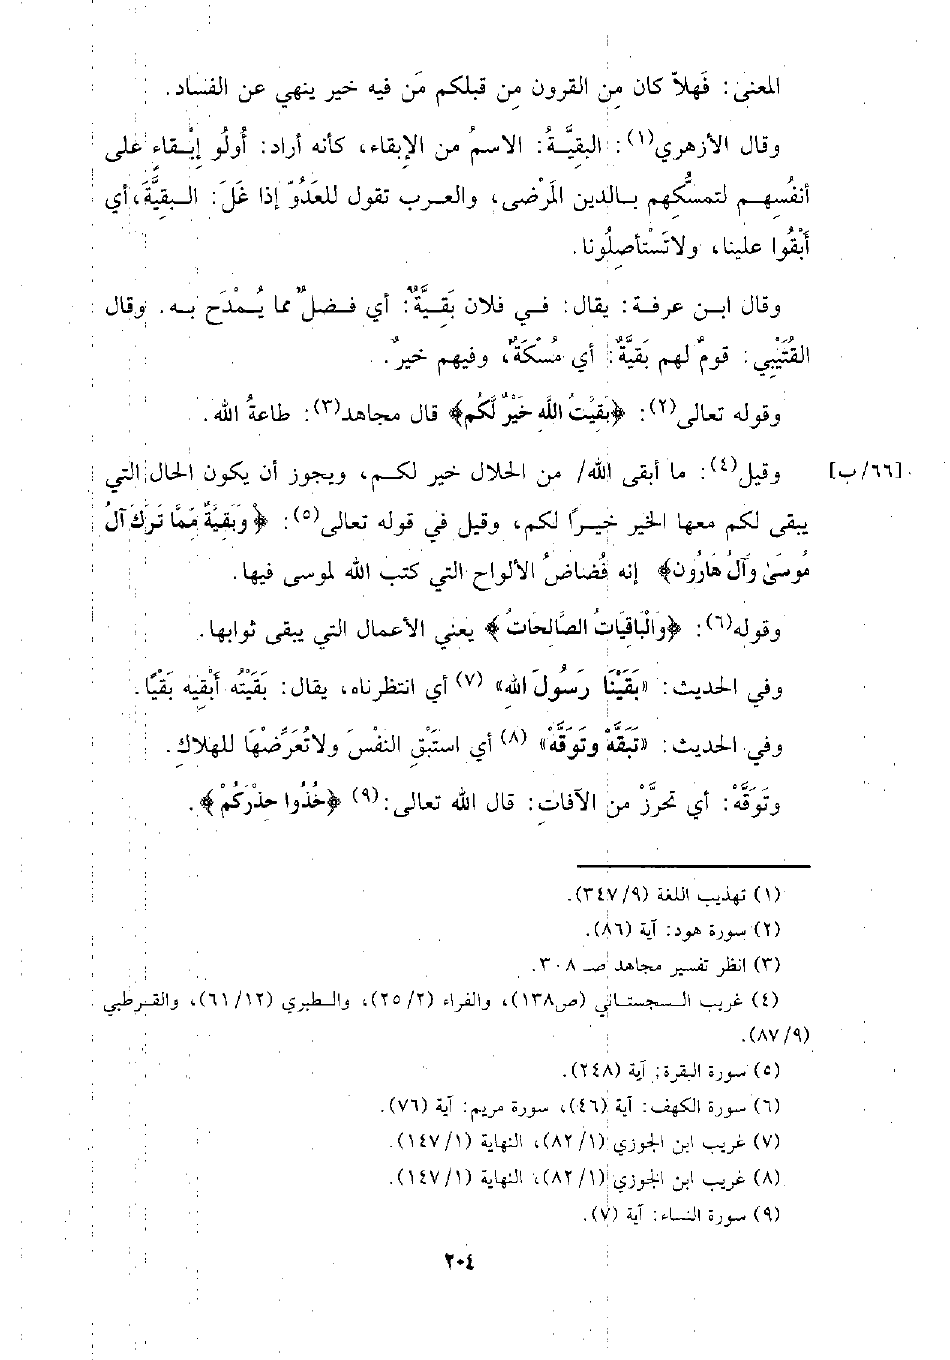 المعنى: فَهلاّ كان مِن القرون مِن قبلكم مَن فيه خير ينهي عن الفساد.
وقال الأزهري(١): البقيَّةُ: الاسمُ من الإبقاء، كأنه أراد: أُولُو إبْـقاءٍ على
أنفُسهـم لتمسُّكهم بـالدين المَرْضى، والعـرب تقول للعَدُوّ إذا غَلَ: الـبقيَّةَ، أي
أَبْقُوا علينا، ولاتَسْتأصِلُونا.
وقال ابـن عرفـة: يقال: فـي فلان بَقـيَّةٌ: أي فـضلٌ مما يُـمْدَح بـه. وقال
القُتَيْبي: قومٌ لهم بَقيَّةٌ: أي مُسْكَةٌ، وفيهم خيرٌ.
وقوله تعالى(٢): ﴿بَقِيَّتُ اللَّهِ خَيْرٌ لَّكُم﴾ قال مجاهد(٣): طاعةُ الله.
وقيل(٤): ما أبقى الله/ من الحلال خير لكـم، ويجوز أن يكون الحال التي [٦٦/ب]
يبقى لكم معها الخير خيـرًا لكم، وقيل في قوله تعالى(٥): ﴿وَبَقِيَّةٌ مِّمَّا تَرَكَ آلُ
مُوسَىٰ وَآلُ هَارُون﴾ إنه فُضاضُ الألواح التي كتب الله لموسى فيها.
وقوله(٦): ﴿وَالْبَاقِيَاتُ الصَّالِحَاتُ﴾ يعني الأعمال التي يبقى ثوابها.
وفي الحديث: «بَقَيْنَا رَسُولَ الله» (٧) أي انتظرناه، يقال: بَقَيْتُه أَبْقيه بَقْيًا.
وفي الحديث: «تَبَقَّهْ وتَوَقَّهْ» (٨) أي استَبْقِ النفْسَ ولاتُعَرِّضْهَا للهلاكِ.
وتَوَقَّهْ: أي تحرَّزْ من الآفاتِ: قال الله تعالى:(٩) ﴿خُذُوا حِذْرَكُمْ﴾.
(١) تهذيب اللغة (٣٤٧/٩).
(٢) سورة هود: آية (٨٦).
(٣) انظر تفسير مجاهد صـ ٣٠٨.
(٤) غريب السجستـاني (ص١٣٨)، والفراء (٢٥/٢)، والـطبري (٦١/١٢)، والقـرطبي
(٨٧/٩).
(٥) سورة البقرة: آية (٢٤٨).
(٦) سورة الكهف: آية (٤٦)، سورة مريم: آية (٧٦).
(٧) غريب ابن الجوزي (٨٢/١)، النهاية (١٤٧/١).
(٨) غريب ابن الجوزي (٨٢/١)، النهاية (١٤٧/١).
(٩) سورة النساء: آية (٧).
٢٠٤